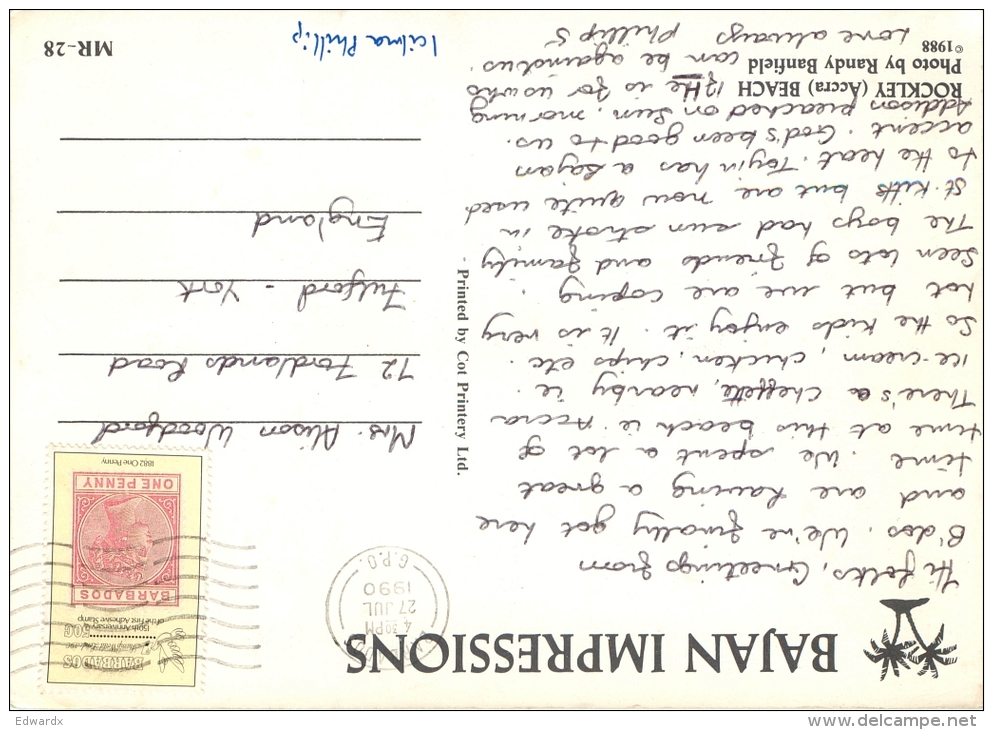 BAJAN IMPRESSIONS
Hi folks, Greetings from
B'dos. We're finally got here
and are having a great
time. We spent a lot of
time at this beach ie. Accra
There's a Cheffette, nearby ie.
ice-cream, chicken, chips etc.
So the kids enjoy it. It is very
hot but we are coping.
Seen lots of friends and family
The boys had sun stroke in
St. Kitts but are now quite used
to the heat. Toyin has a Bajan
accent. God's been good to us.
Addison preached on Sun. morning
"If He is for us who
can be against us.
Love always Phillip S
ROCKLEY (Accra) BEACH
Photo by Randy Banfield
©1988
Printed by Cot Printery Ltd.
G.P.O.
4.30PM
27 JUL
1990
BARBADOS
50c
150th Anniversary
of the First Adhesive Stamp
BARBADOS
ONE PENNY
1882 One Penny
Mrs. Alison Woodford
72 Fordlands Road
Fulford - York
England
Icilma Phillip
MR-28
Edwardx
www.delcampe.net